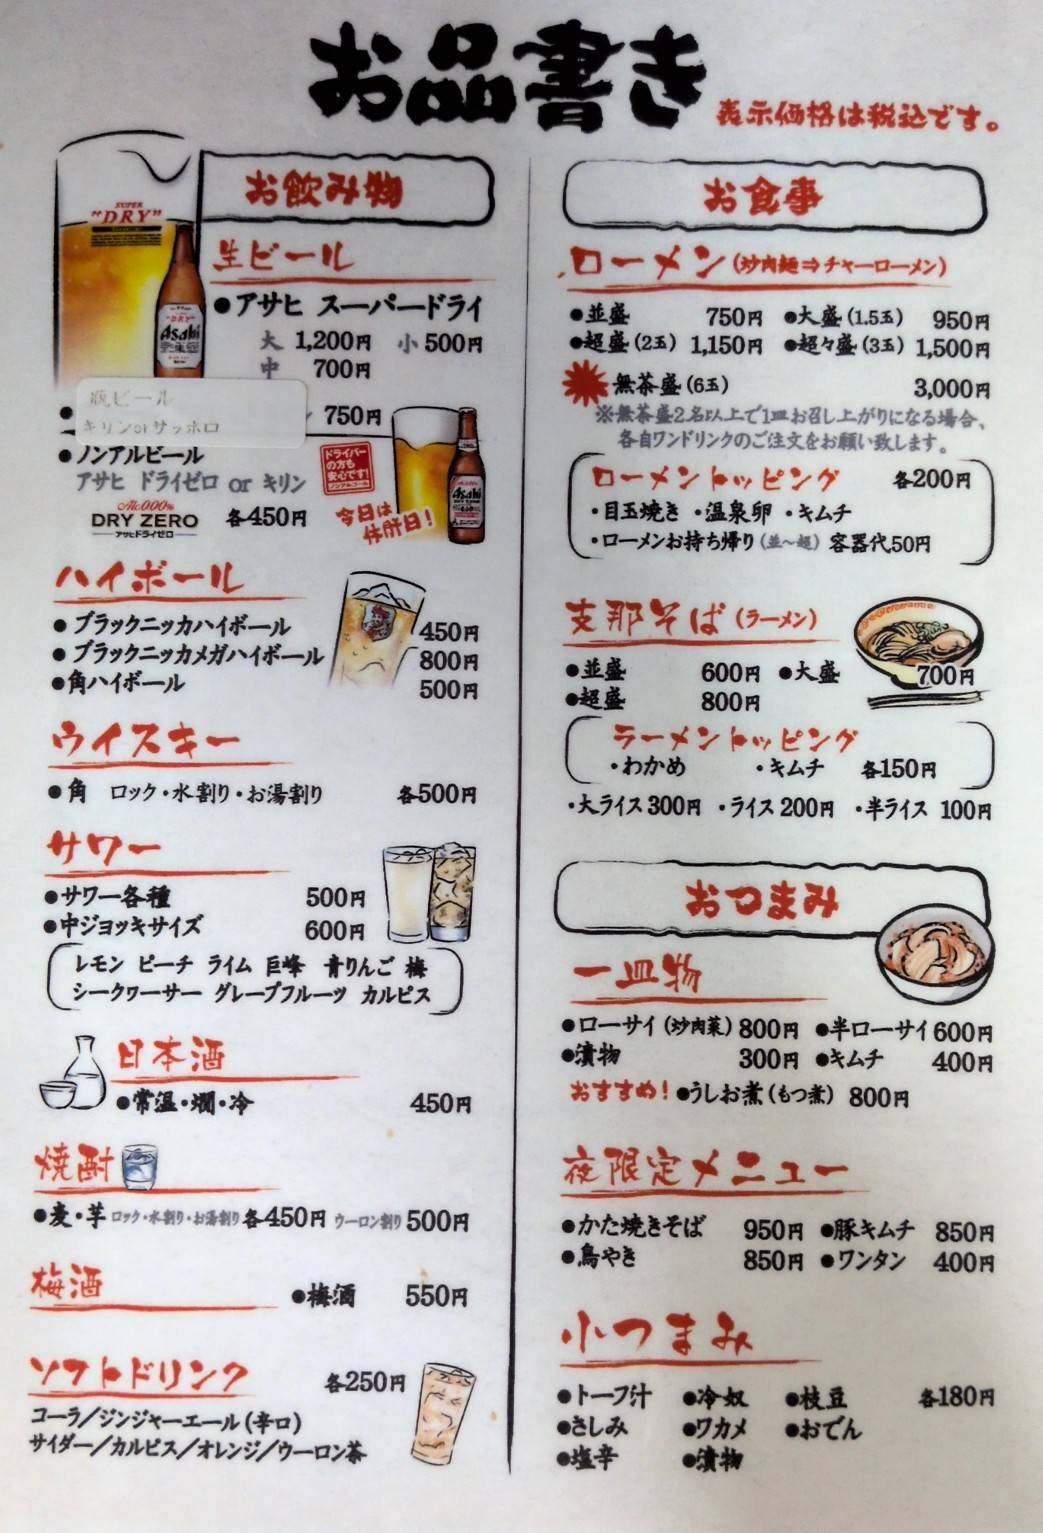 お品書き
表示価格は税込です。
お飲み物
SUPER
"DRY"
Asahi
生ビール
●アサヒ スーパードライ
大 1,200円 小 500円
中 700円
瓶ビール
キリンorサッポロ
750円
●ノンアルビール
アサヒ ドライゼロ or キリン
Alc.0.00%
DRY ZERO
アサヒドライゼロ
各450円
ドライバー
の方も
安心です!
ノンアルコール
今日は
休肝日!
Asahi
ハイボール
●ブラックニッカハイボール 450円
●ブラックニッカメガハイボール 800円
●角ハイボール 500円
ウイスキー
●角 ロック・水割り・お湯割り 各500円
サワー
●サワー各種 500円
●中ジョッキサイズ 600円
レモン ピーチ ライム 巨峰 青りんご 梅
シークヮーサー グレープフルーツ カルピス
日本酒
●常温・燗・冷 450円
焼酎
●麦・芋 ロック・水割り・お湯割り 各450円 ウーロン割り 500円
梅酒 ●梅酒 550円
ソフトドリンク 各250円
コーラ/ジンジャーエール(辛口)
サイダー/カルピス/オレンジ/ウーロン茶
お食事
ローメン(炒肉麺⇒チャーローメン)
●並盛 750円 ●大盛(1.5玉) 950円
●超盛(2玉) 1,150円 ●超々盛(3玉) 1,500円
無茶盛(6玉) 3,000円
※無茶盛2名以上で1皿お召し上がりになる場合、
各自ワンドリンクのご注文をお願い致します。
ローメントッピング 各200円
・目玉焼き ・温泉卵 ・キムチ
・ローメンお持ち帰り(並〜超) 容器代50円
支那そば(ラーメン)
●並盛 600円 ●大盛 700円
●超盛 800円
ラーメントッピング
・わかめ ・キムチ 各150円
・大ライス300円 ・ライス200円 ・半ライス 100円
おつまみ
一皿物
●ローサイ(炒肉菜) 800円 ●半ローサイ 600円
●漬物 300円 ●キムチ 400円
おすすめ! ●うしお煮(もつ煮) 800円
夜限定メニュー
●かた焼きそば 950円 ●豚キムチ 850円
●鳥やき 850円 ●ワンタン 400円
小つまみ
●トーフ汁 ●冷奴 ●枝豆 各180円
●さしみ ●ワカメ ●おでん
●塩辛 ●漬物